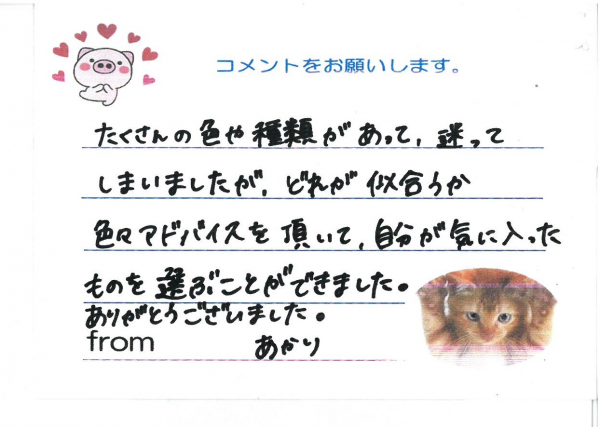 コメントをお願いします。
たくさんの色や種類があって、迷って
しまいましたが、どれが似合うか
色々アドバイスを頂いて、自分が気に入った
ものを選ぶことができました。
ありがとうございました。
from あかり